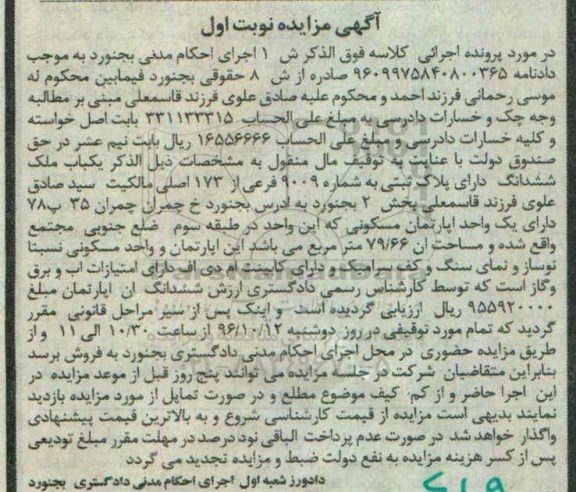 آگهی مزایده نوبت اول
در مورد پرونده اجرائی کلاسه فوق الذکر ش ۱ اجرای احکام مدنی بجنورد به موجب
دادنامه ۹۶۰۹۹۷۵۸۴۰۸۰۰۳۶۵ صادره از ش ۸ حقوقی بجنورد فیمابین محکوم له
موسی رحمانی فرزند احمد و محکوم علیه صادق علوی فرزند قاسمعلی مبنی بر مطالبه
وجه چک و خسارات دادرسی به مبلغ علی الحساب ۳۳۱۱۳۳۳۱۵ بابت اصل خواسته
و کلیه خسارات دادرسی و مبلغ علی الحساب ۱۶۵۵۶۶۶۶ ریال بابت نیم عشر در حق
صندوق دولت با عنایت به توقیف مال منقول به مشخصات ذیل الذکر یکباب ملک
ششدانگ دارای پلاک ثبتی به شماره ۹۰۰۹ فرعی از ۱۷۳ اصلی مالکیت سید صادق
علوی فرزند قاسمعلی بخش ۲ بجنورد به ادرس بجنورد خ چمران چمران ۳۵ پ۷۸
دارای یک واحد اپارتمان مسکونی که این واحد در طبقه سوم ضلع جنوبی مجتمع
واقع شده و مساحت ان ۷۹/۶۶ متر مربع می باشد این اپارتمان و واحد مسکونی نسبتا
نوساز و نمای سنگ و کف سرامیک و دارای کابینت ام دی اف دارای امتیازات اب و برق
وگاز است که توسط کارشناس رسمی دادگستری ارزش ششدانگ ان اپارتمان مبلغ
۹۵۵۹۲۰۰۰۰ ریال ارزیابی گردیده است و اینک پس از سیر مراحل قانونی مقرر
گردید که تمام مورد توقیفی در روز دوشنبه ۹۶/۱۰/۱۲ از ساعت ۱۰/۳۰ الی ۱۱ و از
طریق مزایده حضوری در محل اجرای احکام مدنی دادگستری بجنورد به فروش برسد
بنابراین متقاضیان شرکت در جلسه مزایده می توانند پنج روز قبل از موعد مزایده در
این اجرا حاضر و از کم و کیف موضوع مطلع و در صورت تمایل از مورد مزایده بازدید
نمایند بدیهی است مزایده از قیمت کارشناسی شروع و به بالاترین قیمت پیشنهادی
واگذار خواهد شد در صورت عدم پرداخت الباقی نود درصد در مهلت مقرر مبلغ تودیعی
پس از کسر هزینه مزایده به نفع دولت ضبط و مزایده تجدید می گردد
دادورز شعبه اول اجرای احکام مدنی دادگستری بجنورد